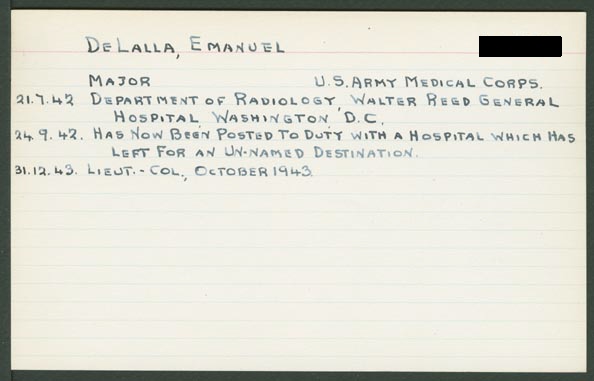 DeLalla, Emanuel
Major U.S. Army Medical Corps.
21.7.42 Department of Radiology, Walter Reed General
Hospital, Washington, D.C.
24.9.42. Has Now Been Posted To Duty with a Hospital which Has
Left For an Un-named Destination.
31.12.43. Lieut.-Col., October 1943.